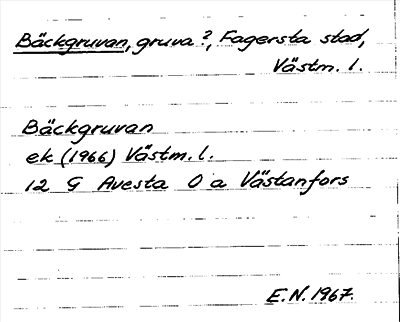 Bäckgruvan, gruva?, Fagersta stad,
Västm. l.
Bäckgruvan
ek (1966) Västm. l.
12 G Avesta 0 a Västanfors
E.N. 1967.